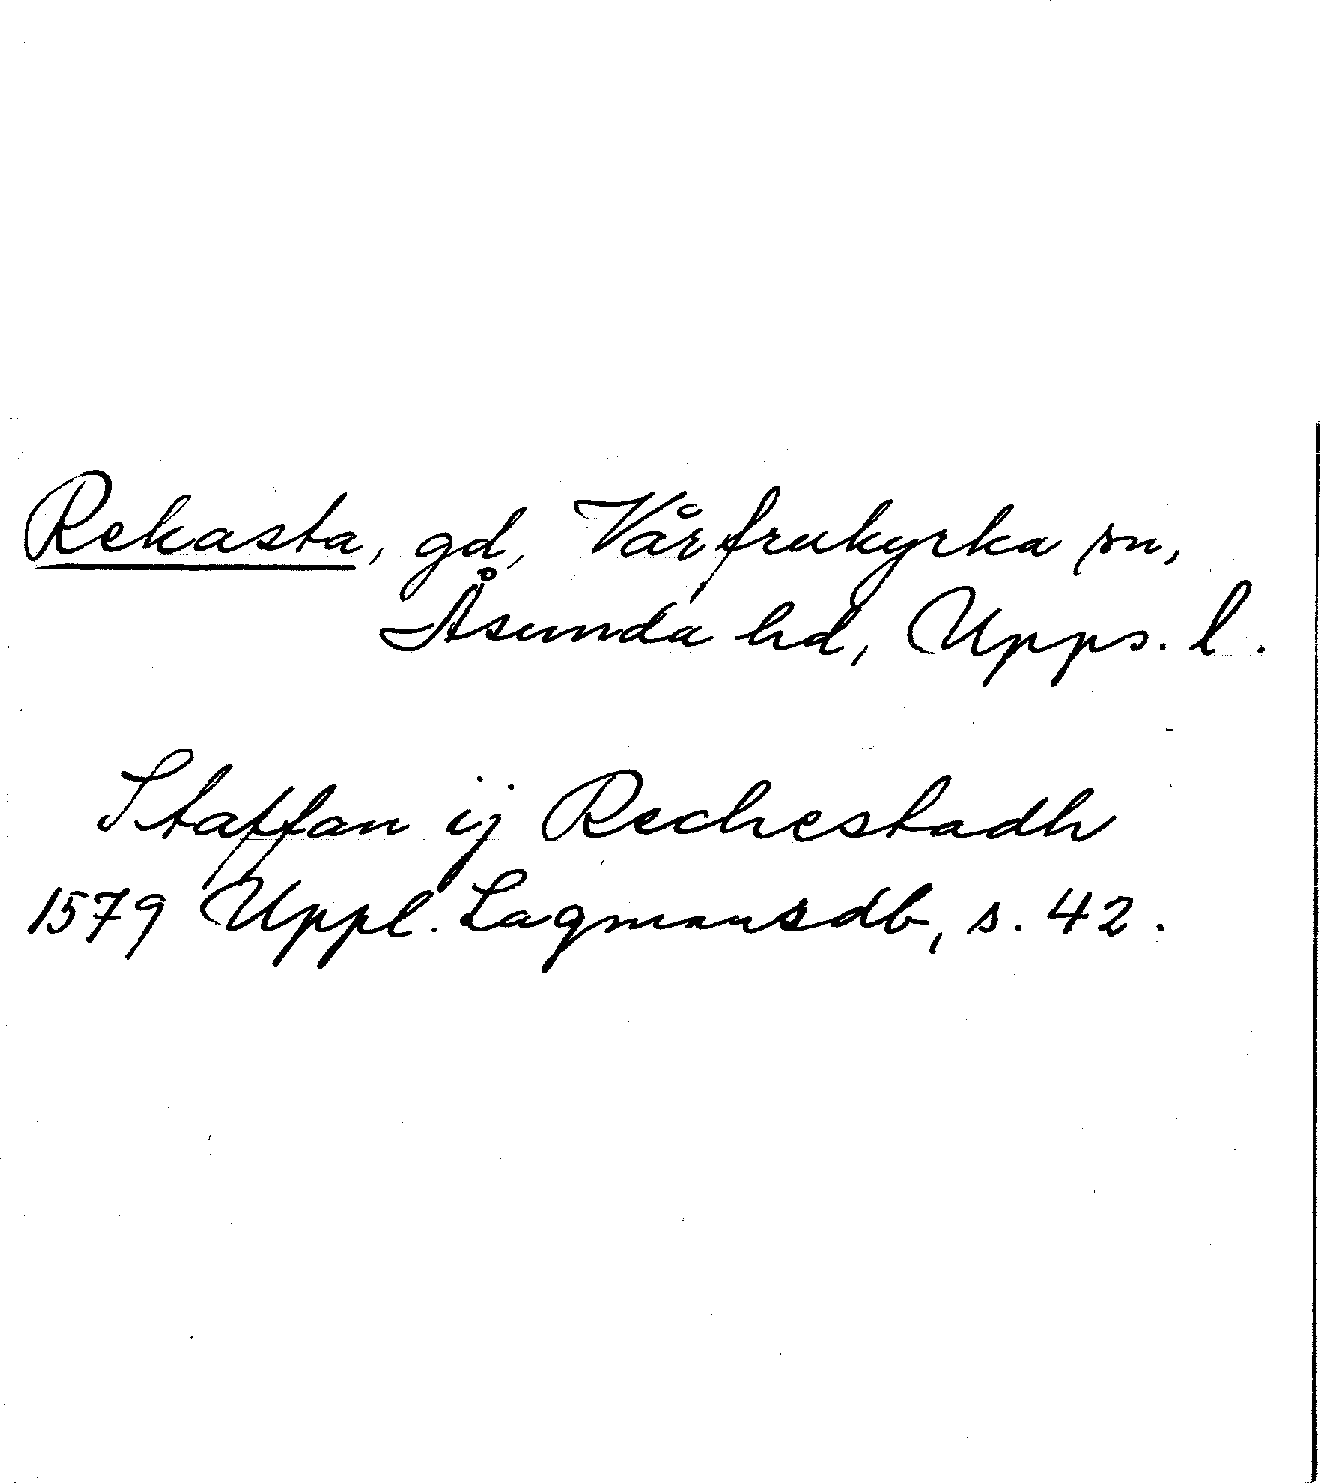 Rekasta, gd, Vårfrukyrka sn,
Åsunda hd, Upps. l.
Staffan ij Rechestadh
1579 Uppl. Lagmansdb, s. 42.